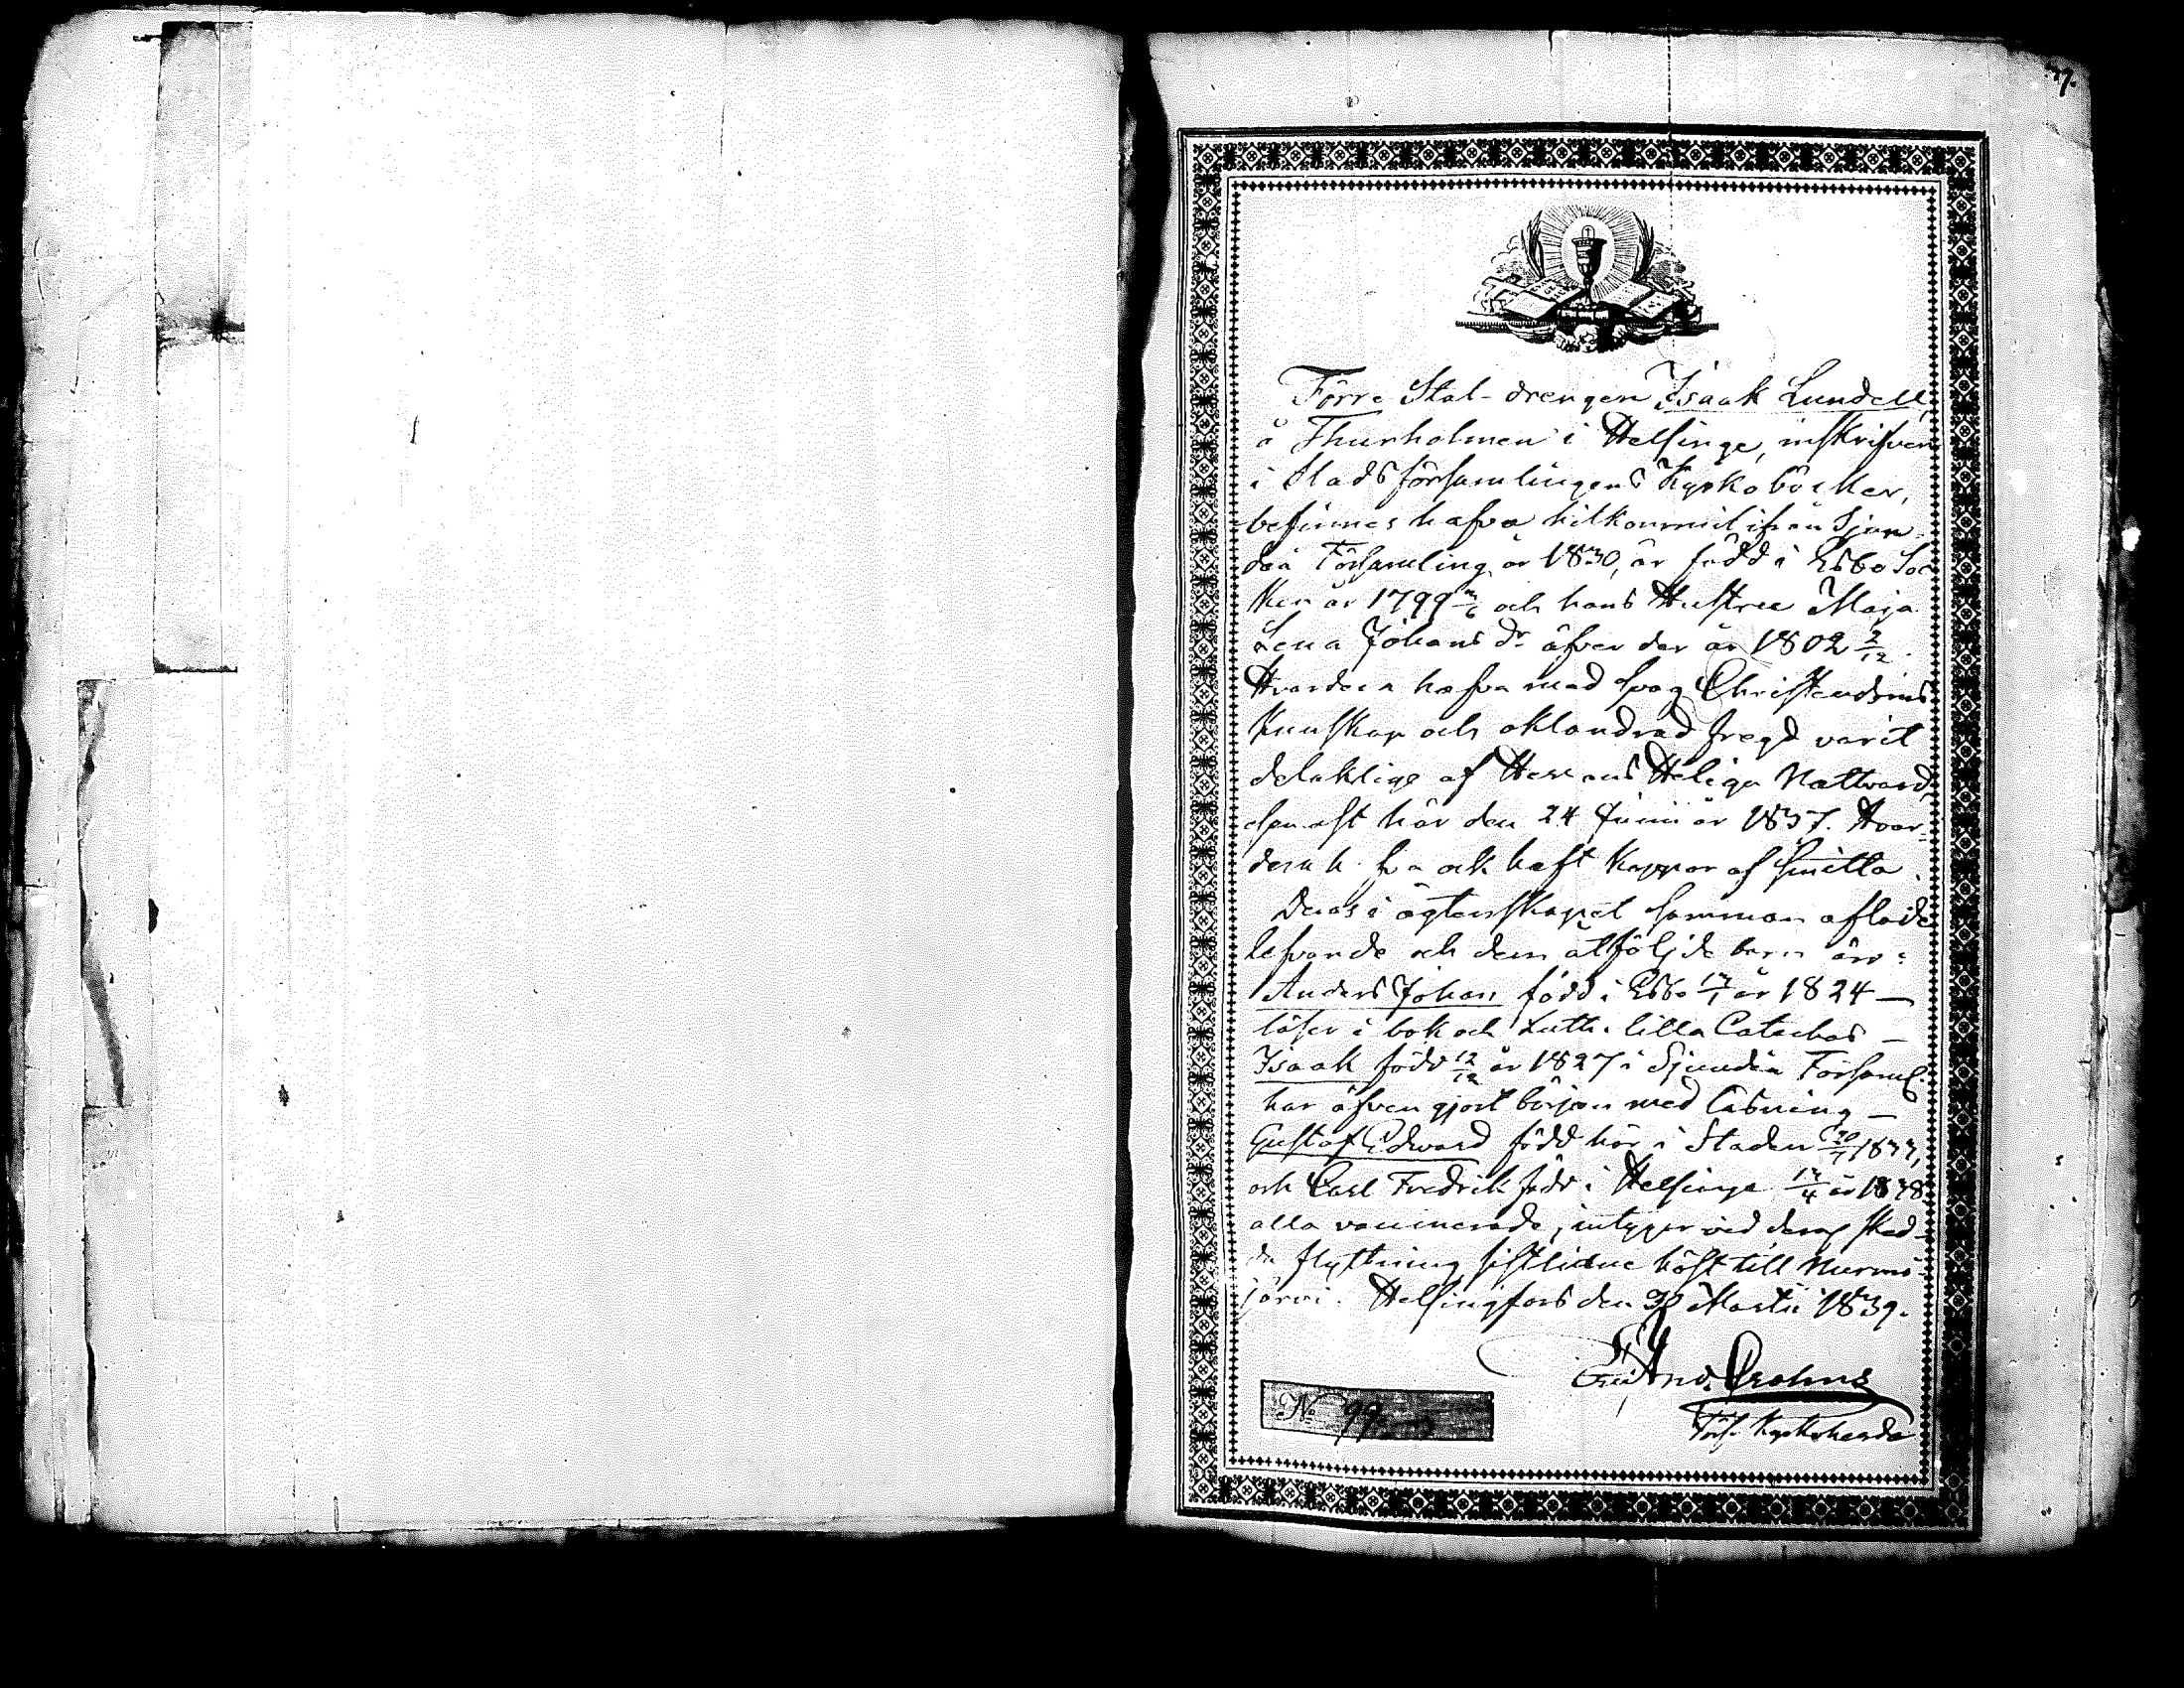 77.
Förre Stal-drengen Isaak Lundell,
å Thurholmen i Helsinge, inskrifven
i Stadsförsamlingens Kyrkoböcker,
befinnes hafva hitkommit ifrån Sjun
deå Församling år 1830, är född i Esbo Soc
ken år 1799 och hans Hustru Maja
Lena Johans dr äfven der år 1802 2/12.
Hvardera hafva med svag Christendoms
kunskap och oklandrad fregd varit
delaktige af Herrans Heliga Nattvard,
senast här den 24 Junii år 1837. Hvar-
dera h. fva ock haft koppor af smitta.
Deras i ägtenskapet samman aflade
lefvande och dem åtföljde barn äro:
Anders Johan född i Esbo 17/1 år 1824 —
läser i bok och Luth. lilla Cateches —
Isaak född 12/12 år 1827 i Sjundeå Församl.
har äfven gjort början med läsning —
Gustaf Edvard född här i Staden 20/1 1833,
och Carl Fredrik född i Helsinge 17/4 år 1838
alla vaccinerade, intygar vid deras sked-
de flyttning sistlidne höst till Nurmi-
järvi. Helsingfors den Martii 1839.
And. Crohns
Förs. Kyrkoherde
No 99